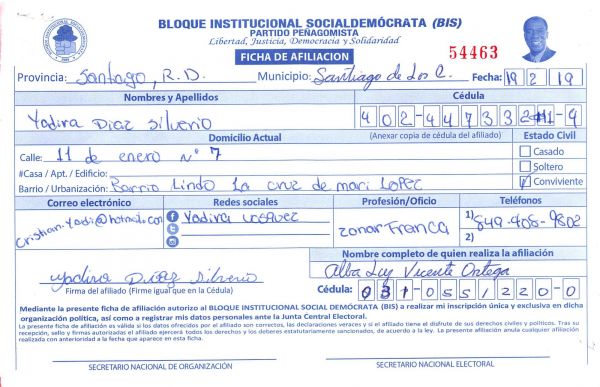 BLOQUE INSTITUCIONAL SOCIALDEMÓCRATA (BIS)
PARTIDO PEÑAGOMISTA
Libertad, Justicia, Democracia y Solidaridad
FICHA DE AFILIACION
54463
Provincia: Santiago, R.D. Municipio: Santiago de Los C. Fecha: 19 2 19
Nombres y Apellidos Cédula
Yadira Diaz Silverio 402-4473321-9
Domicilio Actual (Anexar copia de cédula del afiliado) Estado Civil
Calle: 11 de enero Nº 7 Casado
#Casa / Apt. / Edificio: Soltero
Barrio / Urbanización: Barrio Lindo La cruz de mari Lopez Conviviente
Correo electrónico Redes sociales Profesión/Oficio Teléfonos
cristhan-yadi@hotmail.com Yadira vasquez zonar Franca 1) 849-408-9802
2)
Nombre completo de quien realiza la afiliación
Yadira Diaz Silverio Alba Luz Vicente Ortega
Firma del afiliado (Firme igual que en la Cédula) Cédula: 031-0551220-0
Mediante la presente ficha de afiliación autorizo al BLOQUE INSTITUCIONAL SOCIAL DEMÓCRATA (BIS) a realizar mi inscripción única y exclusiva en dicha
organización política, así como a registrar mis datos personales ante la Junta Central Electoral.
La presente ficha de afiliación es válida si los datos ofrecidos por el afiliado son correctos, las declaraciones veraces y si el afiliado tiene el disfrute de sus derechos civiles y políticos. Tras su
recepción, sello y firmas autorizadas el afiliado ejercerá todos los derechos y los deberes estatutariamente sancionados, de acuerdo a la ley. La presente afiliación anula cualquier afiliación
realizada con anterioridad a la fecha que aparece en esta ficha.
SECRETARIO NACIONAL DE ORGANIZACIÓN SECRETARIO NACIONAL ELECTORAL